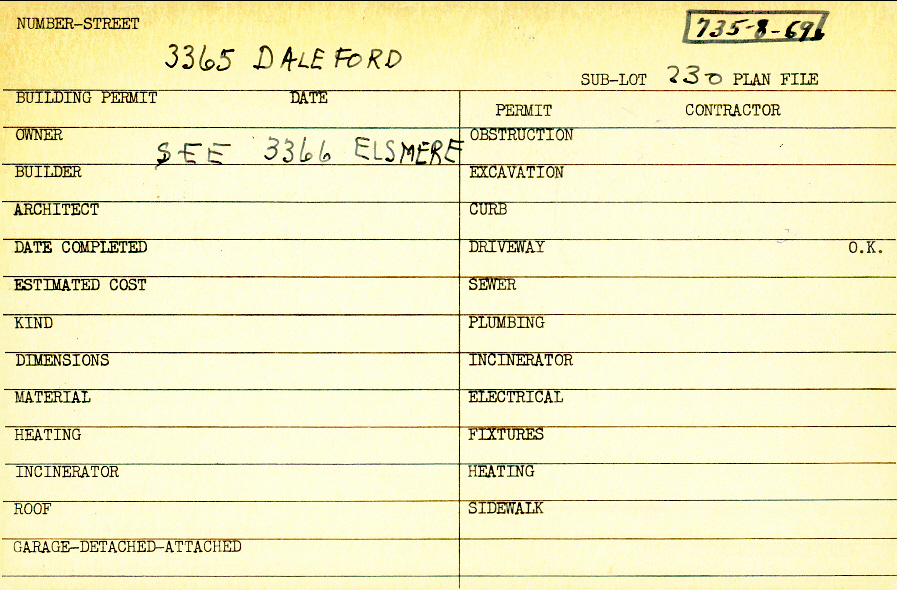 NUMBER-STREET
735-8-691
3365 DALEFORD
SUB-LOT 230 PLAN FILE
BUILDING PERMIT DATE
PERMIT CONTRACTOR
OWNER
SEE 3366 ELSMERE
OBSTRUCTION
BUILDER
EXCAVATION
ARCHITECT
CURB
DATE COMPLETED
DRIVEWAY O.K.
ESTIMATED COST
SEWER
KIND
PLUMBING
DIMENSIONS
INCINERATOR
MATERIAL
ELECTRICAL
HEATING
FIXTURES
INCINERATOR
HEATING
ROOF
SIDEWALK
GARAGE-DETACHED-ATTACHED